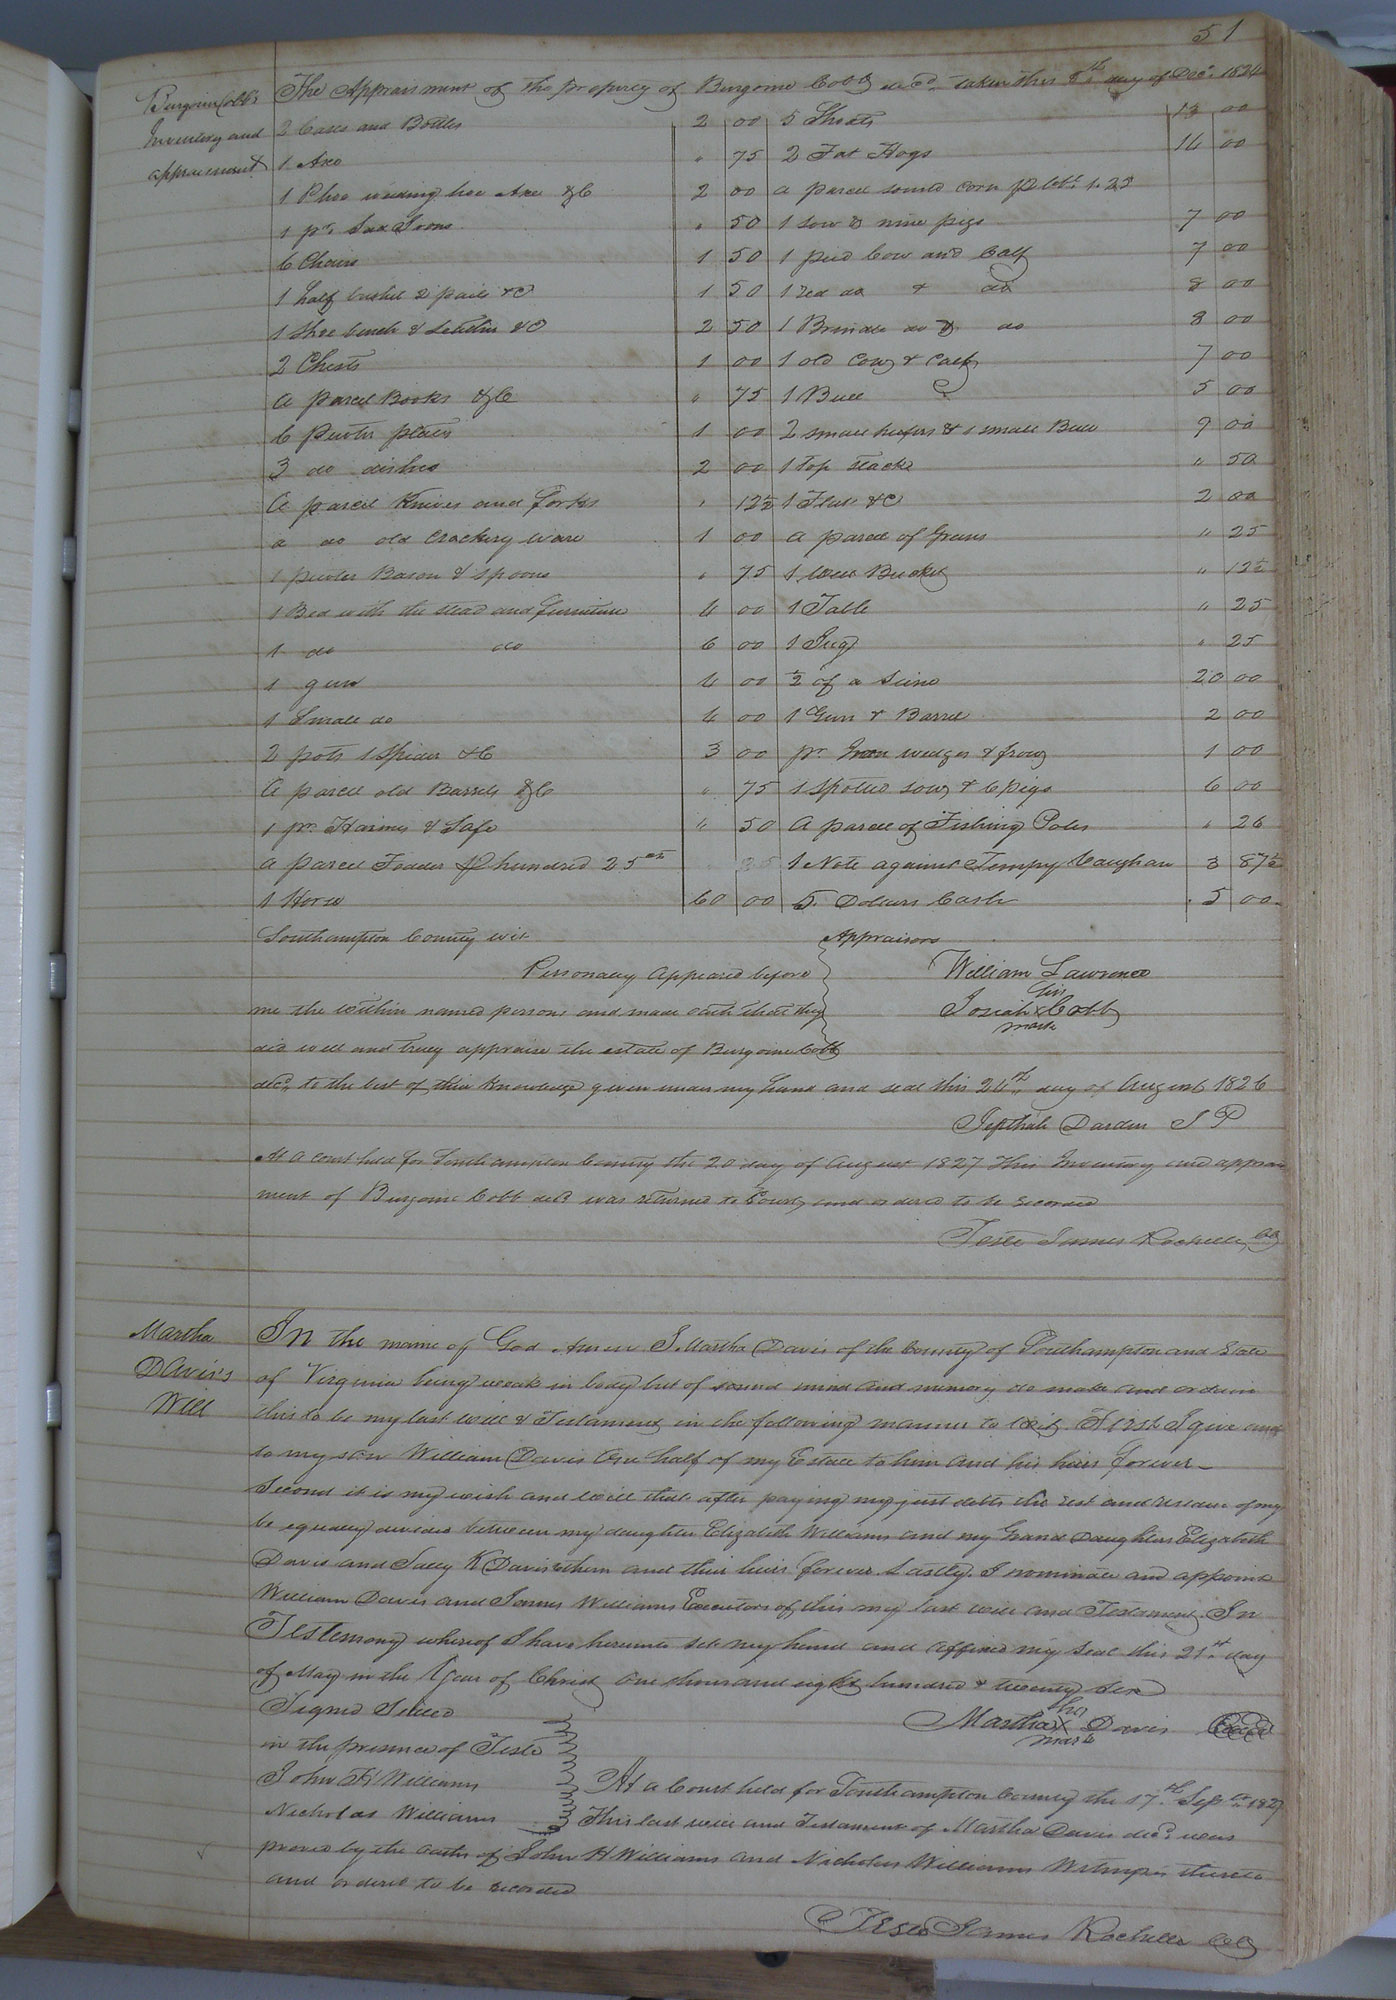 51
Burgoin Cobb's
Inventory and
appraisement
The Appraisment of the property of Burgoine Cobb decd. taken this 8th day of Decr. 1824
2 Cases and Bottles 2 00 5 Shoats 13 00
1 Axe " 75 2 Fat Hogs 14 00
1 weeding hoe Axe &C 2 00 a parcel sound corn p bbl. 1.25
1 pr. Sad Irons " 50 1 sow & nine pigs 7 00
6 Chairs 1 50 1 pied Cow and Calf 7 00
1 half bushel 2 pails &C 1 50 1 red do & do 8 00
1 Shoe bench & &C 2 50 1 Brindle do & do 8 00
2 Chests 1 00 1 old Cow & Calf 7 00
A parcel Books &C " 75 1 Bull 5 00
6 pewter plates 1 00 2 small heifers & 1 small Bull 9 00
3 do dishes 2 00 1 top stack " 50
A parcel Knives and forks " 12½ 1 &C 2 00
a do old Crockery ware 1 00 a parcel of " 25
1 pewter Bason & spoons " 75 1 well Bucket " 12½
1 Bed with the stead and furniture 4 00 1 Table " 25
1 do do 6 00 1 Jug " 25
1 gun 4 00 ½ of a Seine 20 00
1 Small do 4 00 1 Gun & Barrel 2 00
2 pots 1 spider &C 3 00 pr. Iron wedges & frow 1 00
A parcel old Barrels &C " 75 1 spotted sow & 6 pigs 6 00
1 pr. Harnes & Safe " 50 A parcel of Fishing Poles " 26
a parcel Foader p hundred 25 cts 1 Note against Tempy Vaughan 3 87½
1 Horse 60 00 5 Dollars Cash 5 00
Southampton County wit
Appraisors
Personally appeared before
William Lawrence
me the within named persons and made oath that they
his
Josiah X Cobb
mark
did well and truly appraise the estate of Burgoine Cobb
decd. to the best of their knowledge given under my hand and seal this 24th day of August 1826
Jepthah Darden J P
At a court held for Southampton County the 20 day of August 1827 This Inventory and apprais
ment of Burgoine Cobb decd was returned to Court and ordered to be recorded
Teste James Rochelle
Martha
Davis's
Will
In the name of God Amen I Martha Davis of the County of Southampton and State
of Virginia being weak in body but of sound mind and memory do make and ordain
this to be my last will & Testament in the following manner to wit. First I give and
to my son William Davis one half of my Estate to him and his heirs forever_
Second it is my wish and will that after paying my just debts the rest and residue of my
be equally divided between my daughter Elizabeth Williams and my Grand Daughters Elizabeth
Davis and Sally K Davis them and their heirs forever Lastly. I nominate and appoint
William Davis and James Williams Executors of this my last will and Testament. In
Testemony whereof I have hereunto set my hand and affixed my seal this 21st day
of May in the Year of Christ one thousand eight hundred & twenty six
Signed Sealed
her
Martha X Davis
mark
in the presence of Teste
John H Williams
Nicholas Williams
At a Court held for Southampton County the 17th Sept 1827
This last will and Testament of Martha Davis decd. was
proved by the oaths of John H Williams and Nicholas Williams Witnesses thereto
and ordered to be recorded
Teste James Rochelle